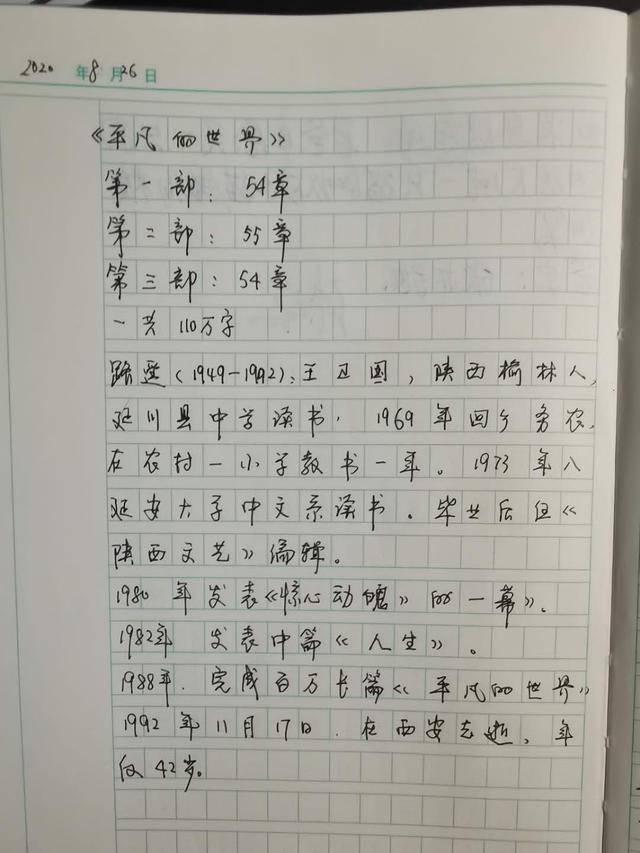 2020 年 8 月 26 日
《平凡的世界》
第一部：54章
第二部：55章
第三部：54章
一共 110万字
路遥（1949-1992），王卫国，陕西榆林人，
延川县中学读书. 1969 年回乡务农，
在农村一小学教书一年。1973 年入
延安大学中文系读书。毕业后任《
陕西文艺》编辑。
1980 年发表《惊心动魄》的一幕》.
1982年 发表中篇《人生》。
1988年. 完成百万长篇《平凡的世界》
1992 年 11 月 17日. 在西安去逝, 年
仅 42岁。